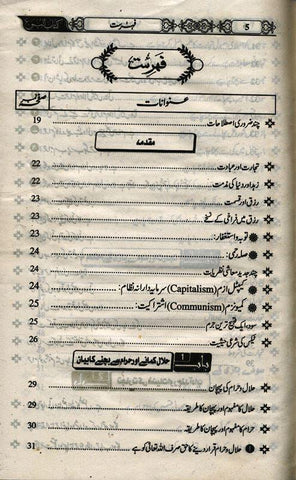 5 فہرست
فہرست
عنوانات صفحہ نمبر
چند ضروری اصطلاحات 19
مقدمہ
تجارت اور عبادت 22
زہد اور دنیا کی مذمت 22
رزق اور قسمت 23
رزق میں فراخی کے نسخے 23
توبہ و استغفار: 23
صلہ رحمی: 24
چند جدید معاشی نظریات 24
کیپٹل ازم (Capitalism) سرمایہ دارانہ نظام: 24
کمیونزم (Communism) اشتراکیت: 25
سود ایک قبیح ترین جرم 25
ٹیکس کی شرعی حیثیت 26
باب 1 حلال کمانے اور حرام سے بچنے کا بیان
حلال و حرام کی پہچان 29
حلال کا مفہوم اور پہچان کا طریقہ 29
حرام کا مفہوم اور پہچان کا طریقہ 30
1 حلال و حرام قرار دینے کا حق صرف اللہ تعالیٰ کو ہے 31